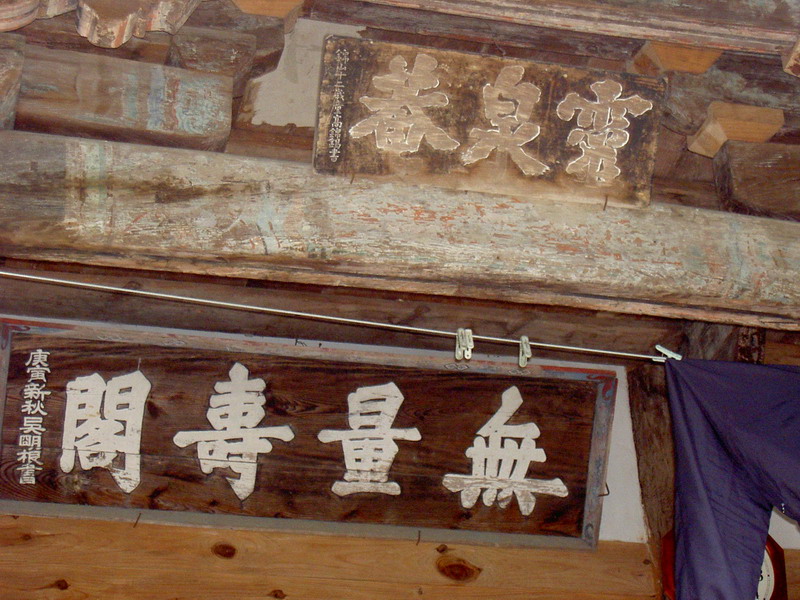 靈泉菴
無量壽閣
庚寅新秋吳剛根書